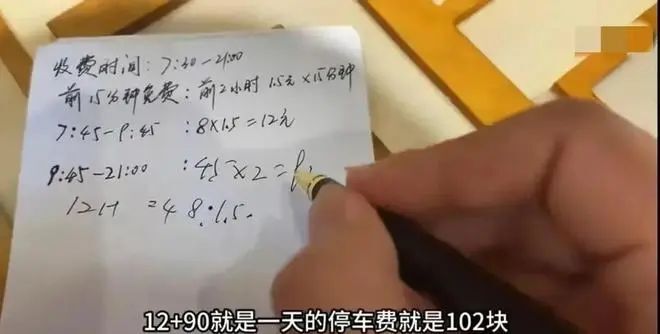 收费时间：7:30-21:00
前15分钟免费：前2小时 1.5元×15分钟
7:45-9:45 :8×1.5=12元
9:45-21:00 :45×2=9
12H =48:1.5.
12+90就是一天的停车费就是102块